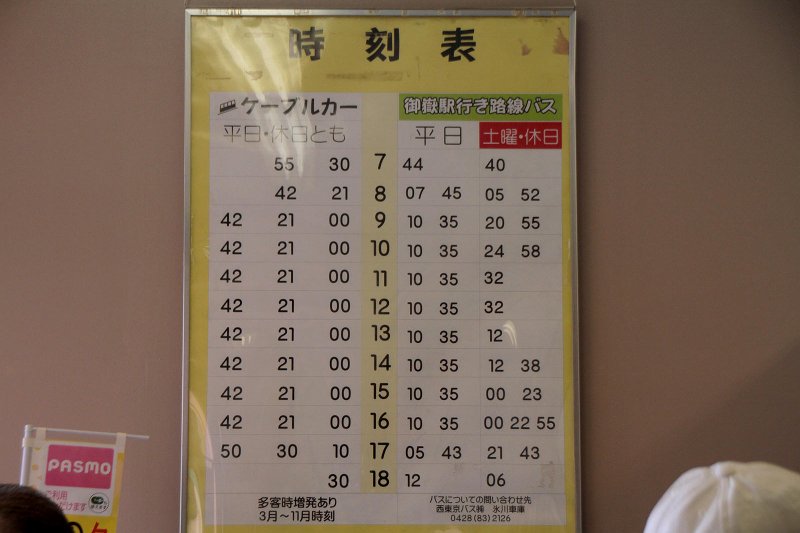 時刻表
ケーブルカー 御嶽駅行き路線バス
平日・休日とも 平日 土曜・休日
55 30 7 44 40
42 21 8 07 45 05 52
42 21 00 9 10 35 20 55
42 21 00 10 10 35 24 58
42 21 00 11 10 35 32
42 21 00 12 10 35 32
42 21 00 13 10 35 12
42 21 00 14 10 35 12 38
42 21 00 15 10 35 00 23
42 21 00 16 10 35 00 22 55
50 30 10 17 05 43 21 43
30 18 12 06
多客時増発あり
3月～11月時刻
バスについての問い合わせ先
西東京バス㈱ 氷川車庫
0428(83)2126
PASMO
ご利用
だけます